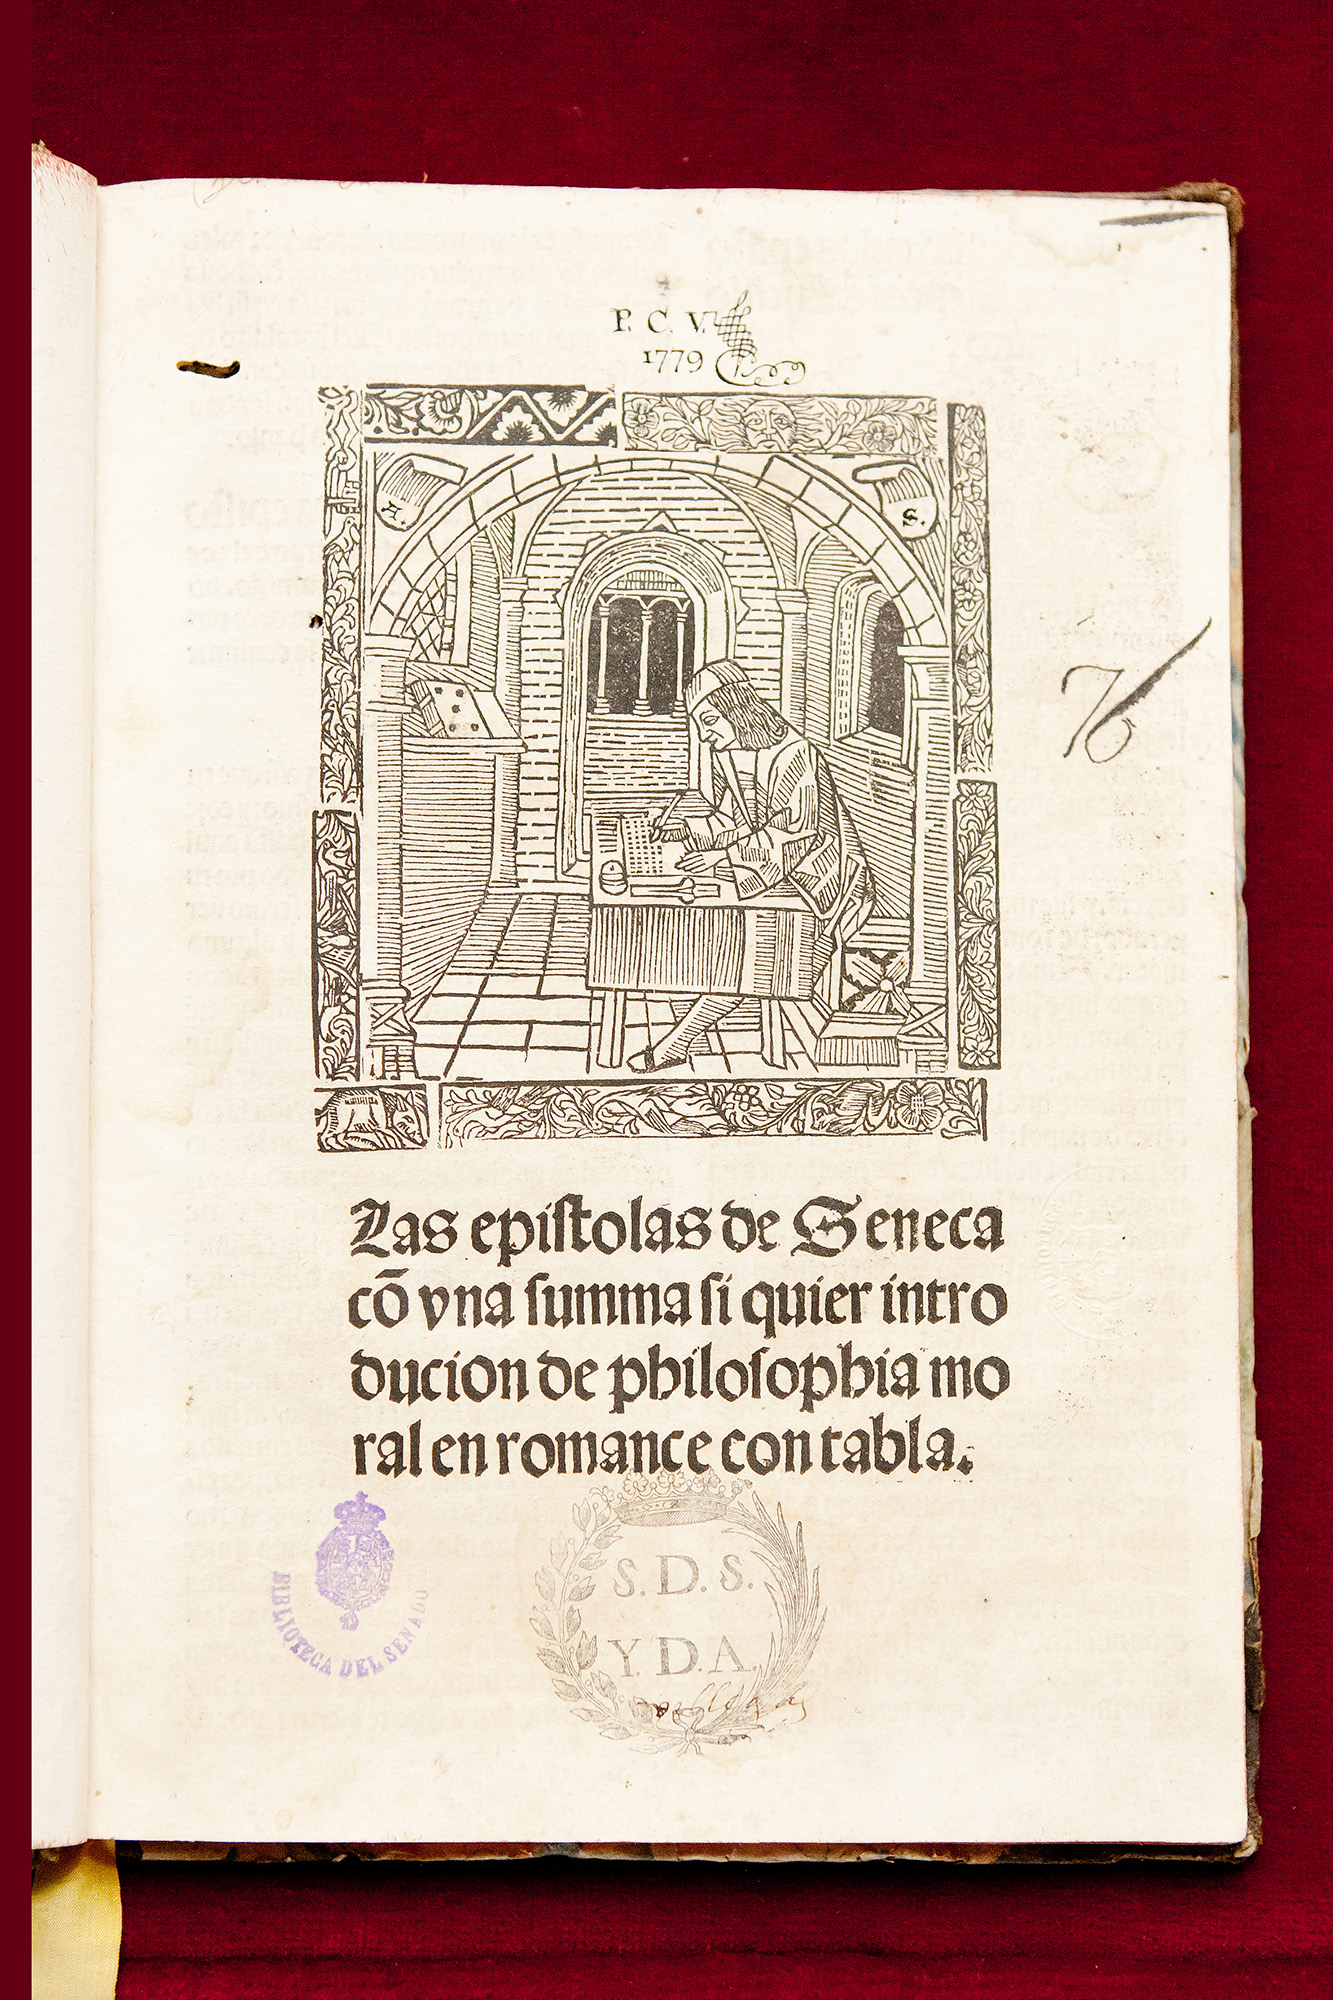 P. C. V.
1779
A.
S.
76
Las epistolas de Seneca
cõ vna summa si quier intro
ducion de philosophia mo
ral en romance con tabla.
S. D. S.
Y. D. A.
BIBLIOTECA DEL SENADO